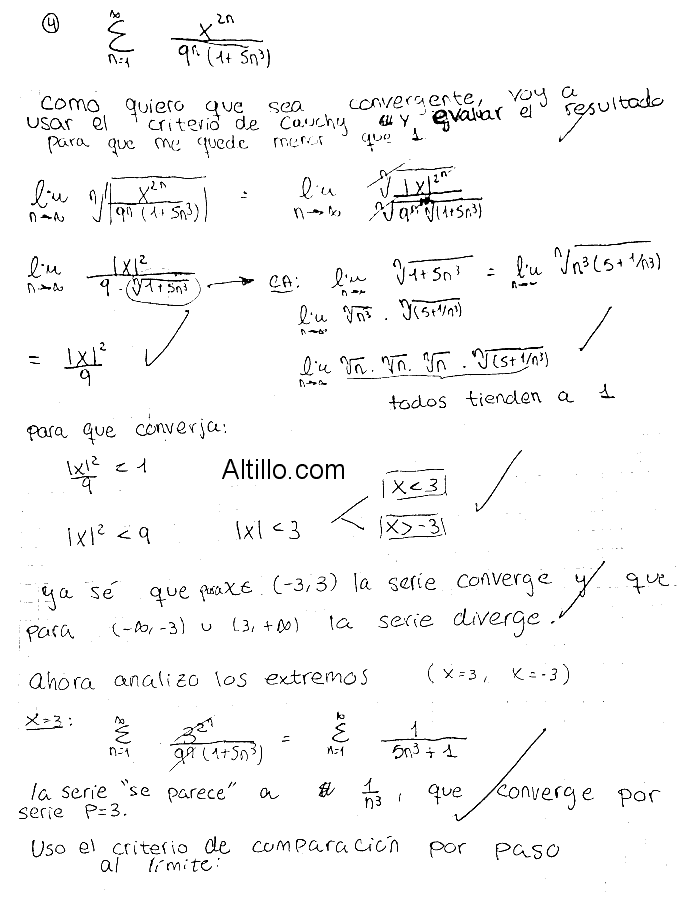 ④ ∞ Σ n=1 x²ⁿ / 9ⁿ (1+5n³)
como quiero que sea convergente, voy a
usar el criterio de Cauchy y evaluar el resultado
para que me quede menor que 1
lim n→∞ ⁿ√|x²ⁿ / 9ⁿ (1+5n³)| = lim n→∞ ⁿ√|x|²ⁿ / ⁿ√9ⁿ ⁿ√(1+5n³)
lim n→∞ |x|² / 9 · ⁿ√1+5n³ → CA: lim n→∞ ⁿ√1+5n³ = lim n→∞ ⁿ√n³(5+1/n³)
lim n→∞ ⁿ√n³ · ⁿ√(5+1/n³)
= |x|² / 9 lim n→∞ ⁿ√n · ⁿ√n · ⁿ√n · ⁿ√(5+1/n³)
todos tienden a 1
para que converja:
|x|²/9 < 1
Altillo.com
|x|² < 9 |x| < 3 x < 3 x > -3
ya sé que para x ∈ (-3,3) la serie converge y que
para (-∞,-3) ∪ (3,+∞) la serie diverge.
Ahora analizo los extremos (x=3, x=-3)
x=3: ∞ Σ n=1 3²ⁿ / 9ⁿ (1+5n³) = ∞ Σ n=1 1 / 5n³ + 1
la serie "se parece" a 1/n³, que converge por
serie P=3.
Uso el criterio de comparación por paso
al límite: